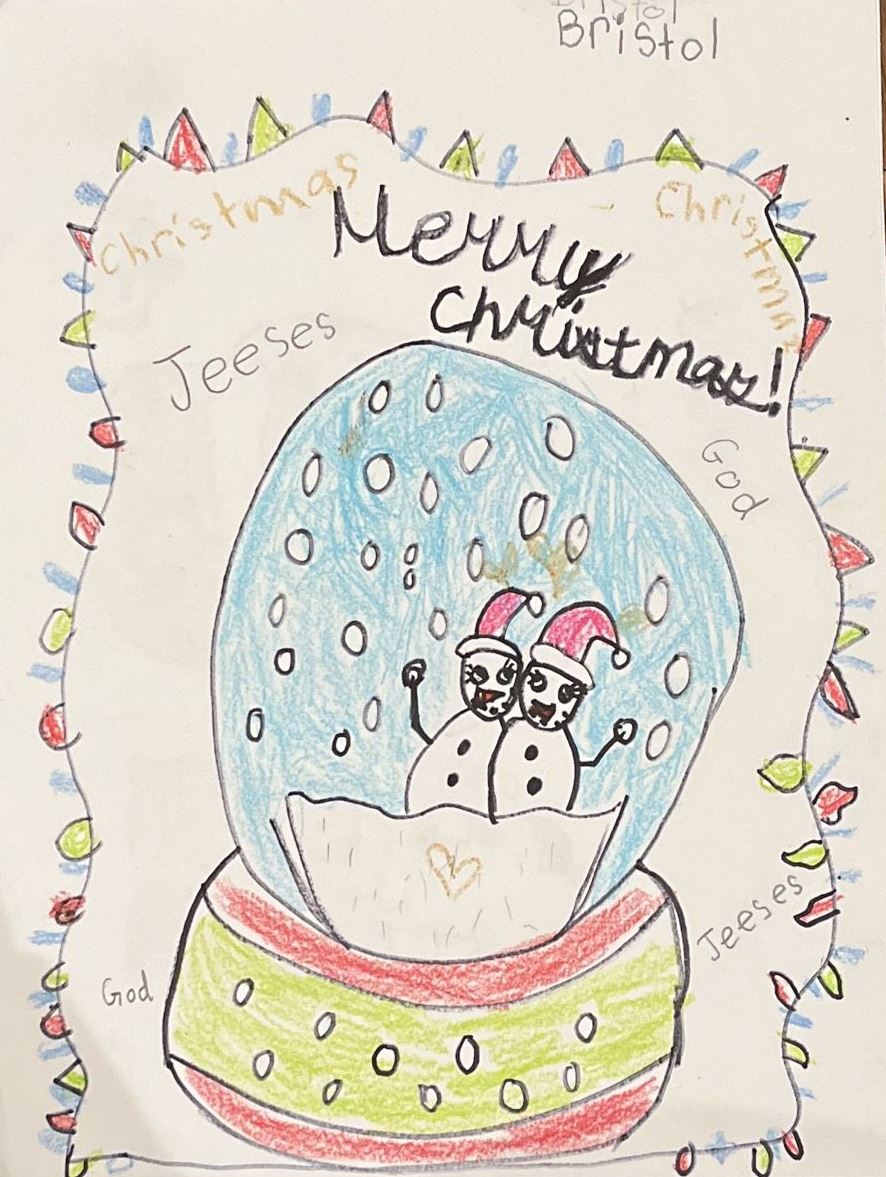 Bristol
Bristol
Christmas
Merry
Christmas!
Christmas
Jeeses
God
Jeeses
God